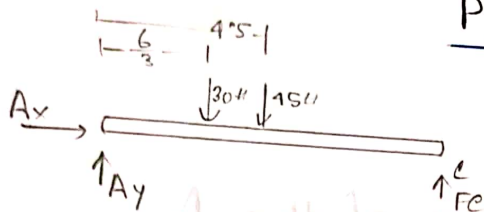 P
4.5
6
3
30" 45"
Ax
Ay
C
FC